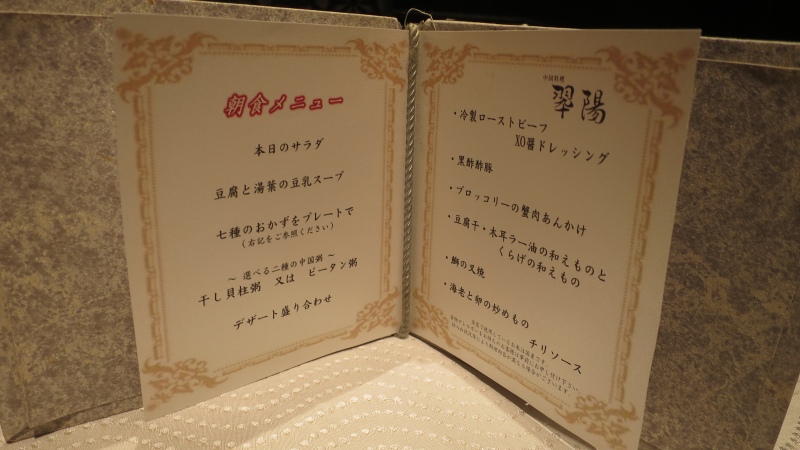 朝食メニュー
本日のサラダ
豆腐と湯葉の豆乳スープ
七種のおかずをプレートで
(右記をご参照ください)
~ 選べる二種の中国粥 ~
干し貝柱粥 又は ピータン粥
デザート盛り合わせ
中国料理
翆陽
・冷製ローストビーフ
XO醤ドレッシング
・黒酢酢豚
・ブロッコリーの蟹肉あんかけ
・豆腐干・木耳ラー油の和えものと
くらげの和えもの
・鰤の叉焼
・海老と卵の炒めもの
チリソース